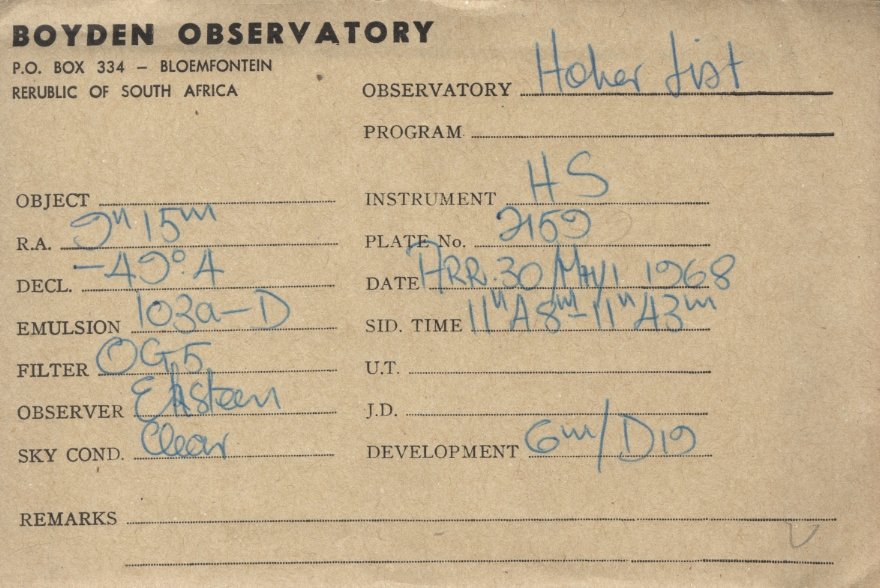 BOYDEN OBSERVATORY
P.O. BOX 334 – BLOEMFONTEIN
RERUBLIC OF SOUTH AFRICA
OBSERVATORY Hoher List
PROGRAM
OBJECT
R.A. 9h 15m
DECL. –49°.4
EMULSION 103a–D
FILTER OG5
OBSERVER
SKY COND. Clear
INSTRUMENT HS
PLATE No. 2159
DATE 30 1968
SID. TIME
U.T.
J.D.
DEVELOPMENT 6m/D19
REMARKS